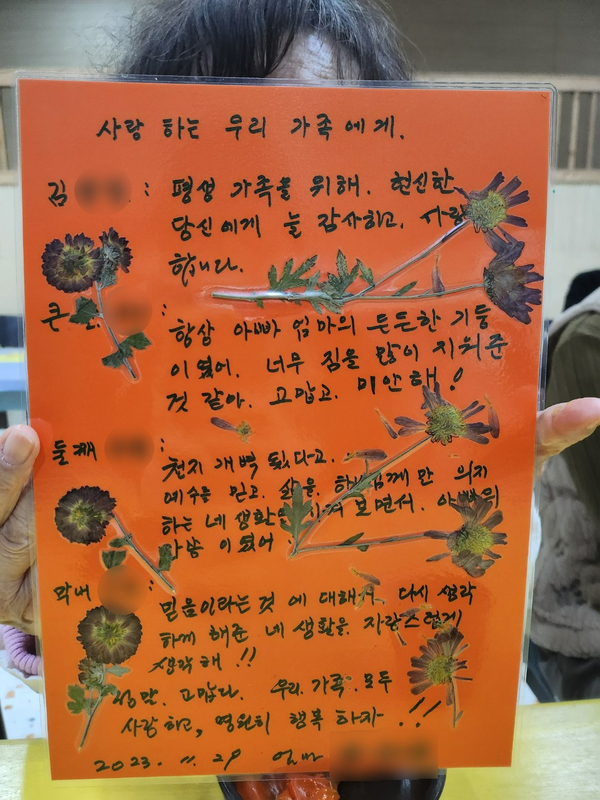 사랑 하는 우리 가족 에게.
김 : 평생 가족을 위해. 헌신한
당신에게 늘 감사하고. 사랑
합니다.
큰 : 항상 아빠 엄마의 든든한 기둥
이였어. 너무 짐을 많이 지워준
것 같아. 고맙고. 미안해!
둘째 : 천지 개벽 됬다고.
예수를 믿고. 삶을. 께 만 의지
하는 네 생활 보면서. 아빠와
이였어
막내 : 믿음이라는 것 에 대해서. 다시 생각
하게 해준 네 생활을 자랑스럽게
생각해!!
정말. 고맙다. 우리. 가족. 모두
사랑하고, 영원히 행복 하자. !!
2023. 11. 29 엄마